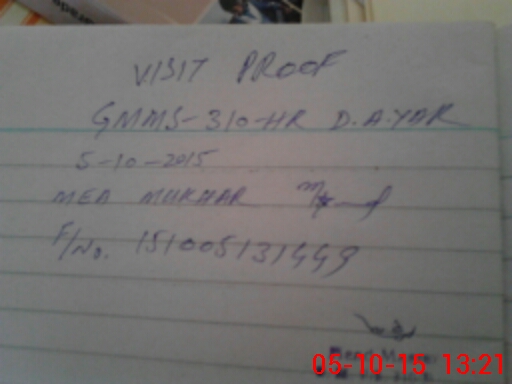 VISIT PROOF
GMMS-310-HR D.A.YAR
5-10-2015
MEA MUKHAR
F/No. 151005131449
05-10-15 13:21